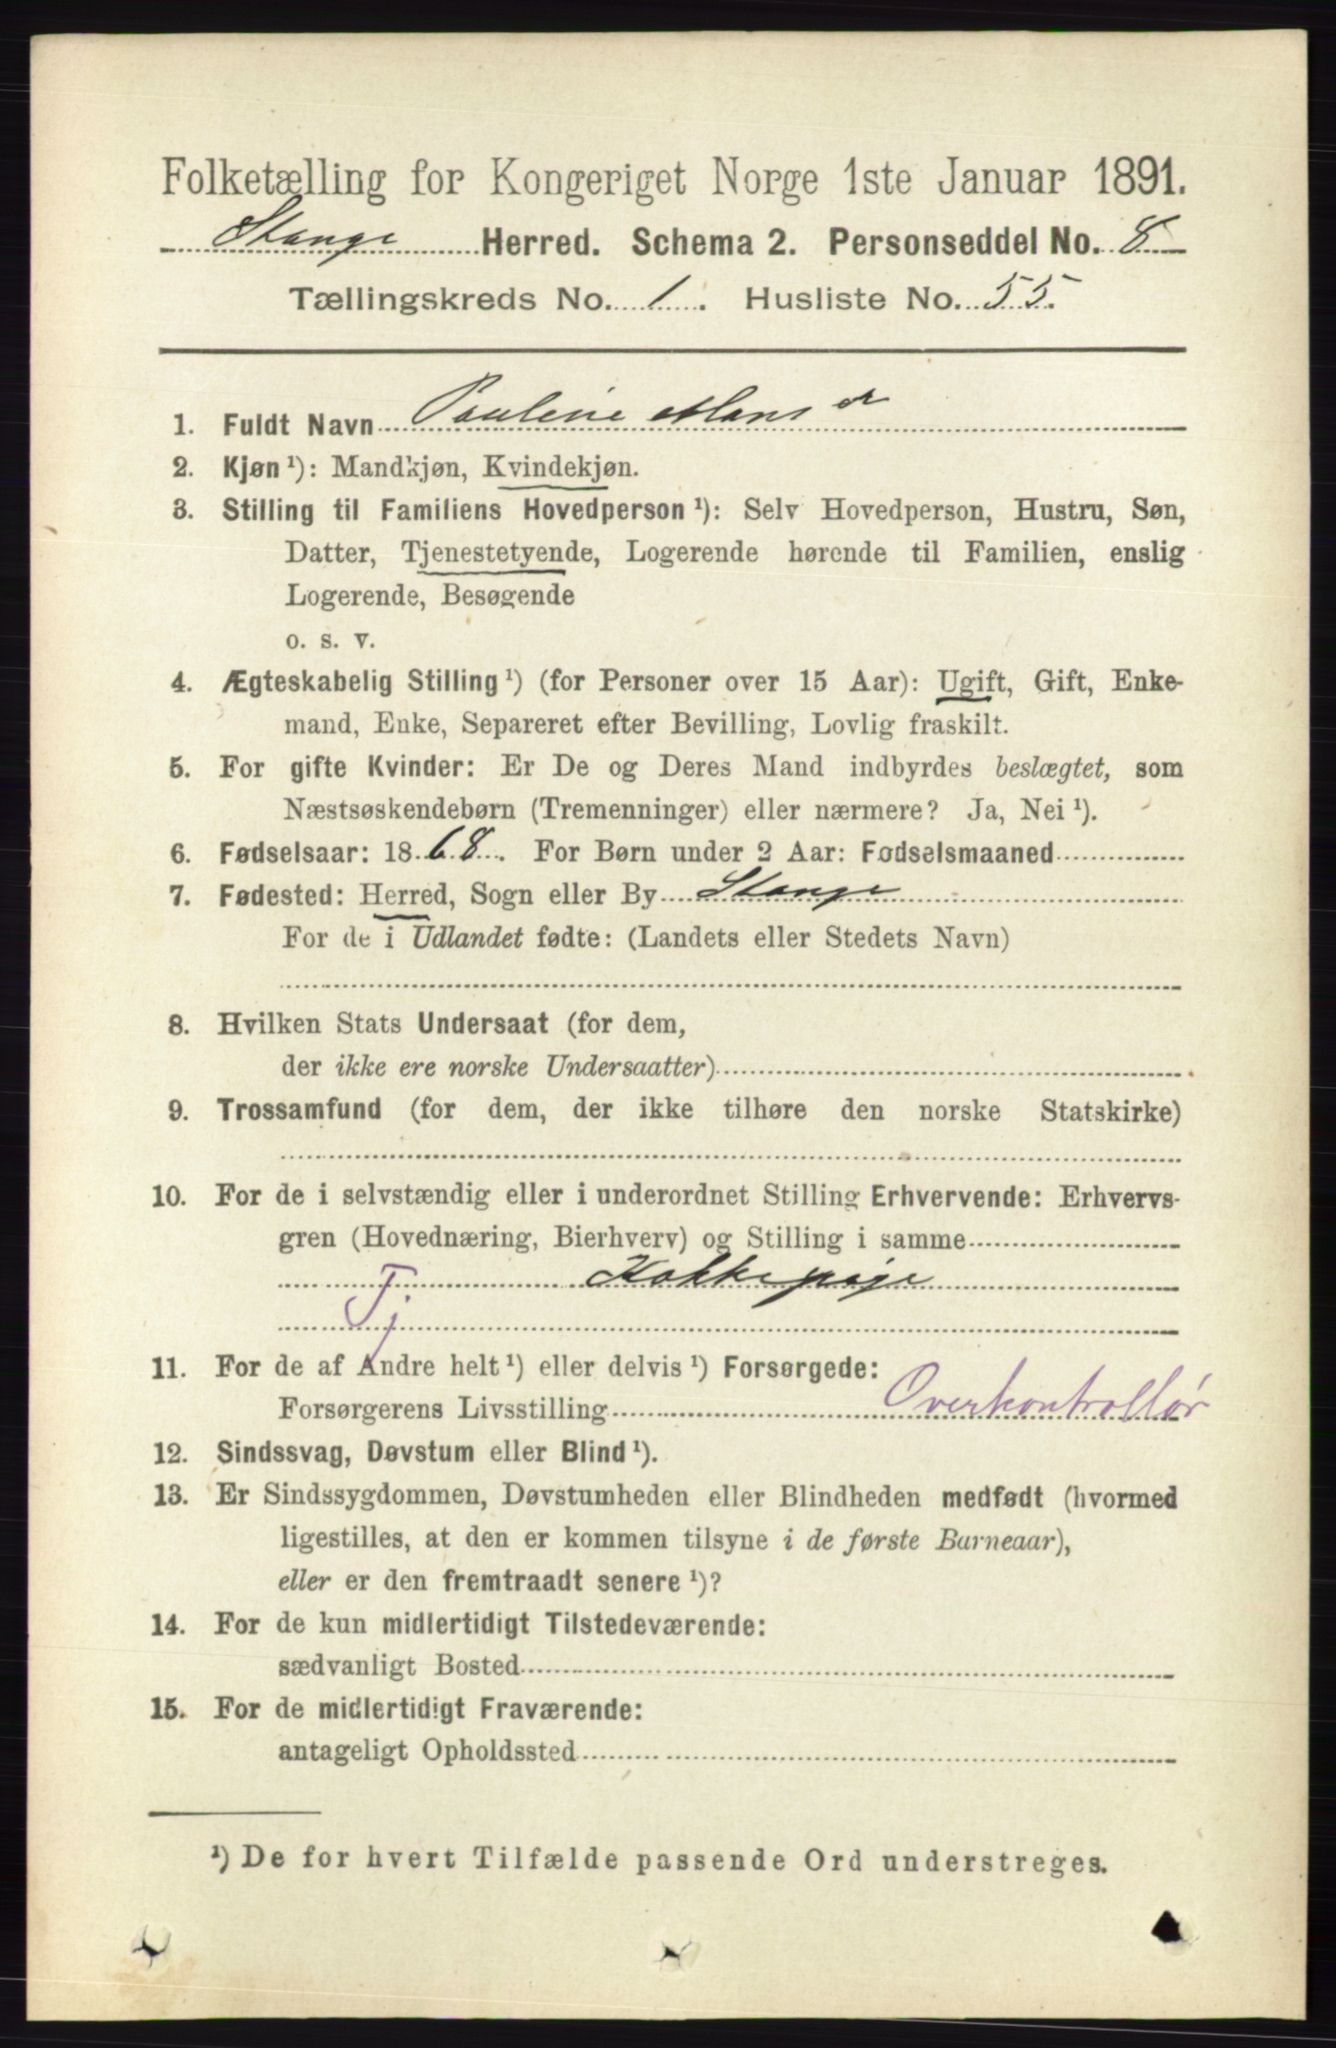 Folketælling for Kongeriget Norge 1ste Januar 1891.
Stange Herred. Schema 2. Personseddel No. 8
Tællingskreds No. 1. Husliste No. 55.
1. Fuldt Navn Pauline Hans dr
2. Kjøn¹): Mandkjøn, Kvindekjøn.
3. Stilling til Familiens Hovedperson¹): Selv Hovedperson, Hustru, Søn,
Datter, Tjenestetyende, Logerende hørende til Familien, enslig
Logerende, Besøgende
o. s. v.
4. Ægteskabelig Stilling¹) (for Personer over 15 Aar): Ugift, Gift, Enke-
mand, Enke, Separeret efter Bevilling, Lovlig fraskilt.
5. For gifte Kvinder: Er De og Deres Mand indbyrdes beslægtet, som
Næstsøskendebørn (Tremenninger) eller nærmere? Ja, Nei¹).
6. Fødselsaar: 1868. For Børn under 2 Aar: Fødselsmaaned
7. Fødested: Herred, Sogn eller By Stange
For de i Udlandet fødte: (Landets eller Stedets Navn)
8. Hvilken Stats Undersaat (for dem,
der ikke ere norske Undersaatter)
9. Trossamfund (for dem, der ikke tilhøre den norske Statskirke)
10. For de i selvstændig eller i underordnet Stilling Erhvervende: Erhvervs-
gren (Hovednæring, Bierhverv) og Stilling i samme
Kokkepige
Tj
11. For de af Andre helt¹) eller delvis¹) Forsørgede:
Forsørgerens Livsstilling Overkontrollør
12. Sindssvag, Døvstum eller Blind¹).
13. Er Sindssygdommen, Døvstumheden eller Blindheden medfødt (hvormed
ligestilles, at den er kommen tilsyne i de første Barneaar),
eller er den fremtraadt senere¹)?
14. For de kun midlertidigt Tilstedeværende:
sædvanligt Bosted
15. For de midlertidigt Fraværende:
antageligt Opholdssted
¹) De for hvert Tilfælde passende Ord understreges.